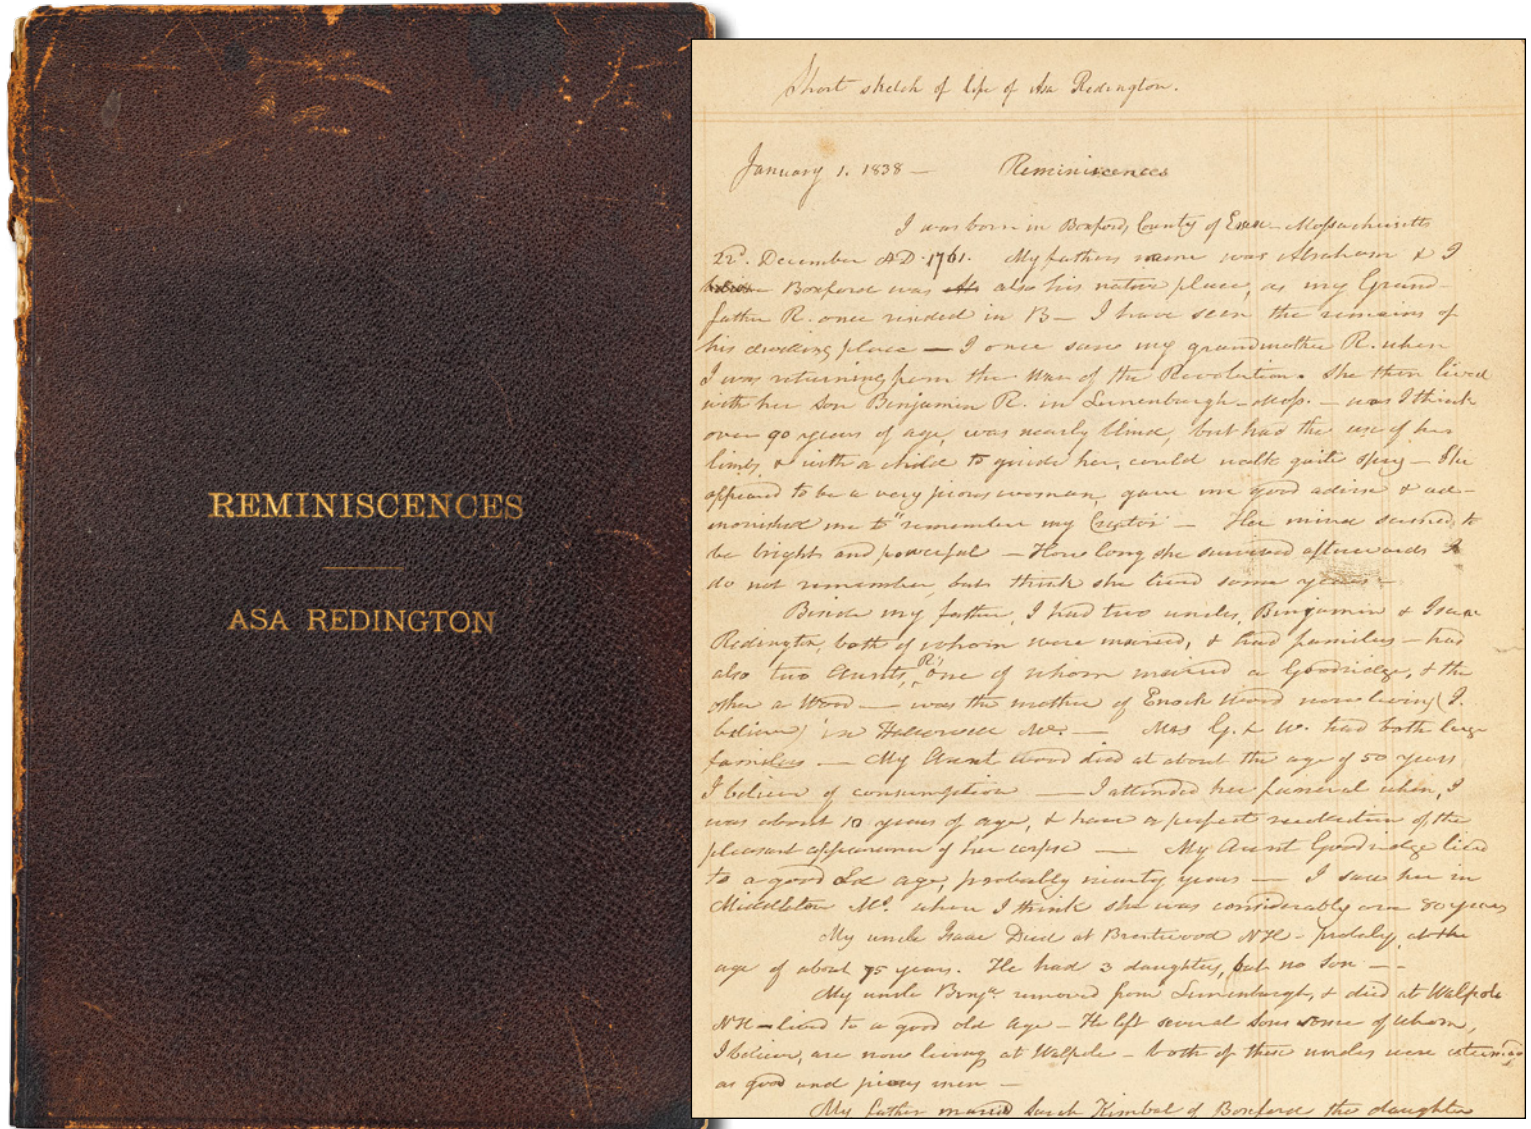 REMINISCENCES
ASA REDINGTON
Short sketch of life of Asa Redington.
January 1. 1838 — Reminiscences
I was born in Boxford, County of Essex - Massachusetts
22d. December AD. 1761. My fathers name was Abraham & I
believe Boxford was also his native place, as my Grand-
father R. once resided in B — I have seen the remains of
his dwelling place — I once saw my grandmother R. when
I was returning from the War of the Revolution. She then lived
with her son Benjamin R. in Lunenburgh - Mass. — was I think
over 90 years of age, was nearly blind, but had the use of her
limbs, & with a child to guide her, could walk quite spry — She
appeared to be a very pious woman, gave me good advise & ad-
monished me to "remember my Creator — Her mind seemed to
be bright and powerful — How long she survived afterwards I
do not remember, but think she lived some years —
Beside my father, I had two uncles, Benjamin & Isaac
Redington, both of whom were married, & had families — had
also two Aunts, R', one of whom married a Goodridge, & the
other a Wood — was the mother of Enoch Wood now living (I
believe) in Me. — Mrs G. & W. had both large
families — My Aunt Wood died at about the age of 50 years
I believe of consumption — I attended her funeral when, I
was about 10 years of age, & have a perfect recollection of the
pleasant appearance of her corpse — My Aunt Goodridge lived
to a good old age, probably ninety years — I saw her in
Middleton Ms. when I think she was considerably over 80 years
My uncle Isaac Died at Brentwood NH - probaly, at the
age of about 75 years. He had 3 daughters, but no son — -
My uncle Benja. removed from Lunenburgh, & died at Walpole
NH — lived to a good old age — He left several sons some of whom,
I believe, are now living at Walpole — both of these uncles were esteemed
as good and pious men —
My father married Sarah Kimbal of Boxford the daughter